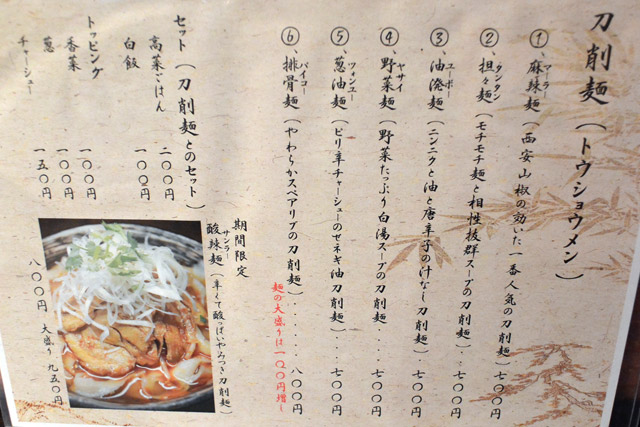 刀削麺（トウショウメン）
① 麻辣麺（西安山椒の効いた一番人気の刀削麺）七〇〇円
マーラー
② 担々麺（モチモチ麺と相性抜群スープの刀削麺）・・七〇〇円
タンタン
③ 油溌麺（ニンニクと油と唐辛子の汁なし刀削麺）七〇〇円
ユーポー
④ 野菜麺（野菜たっぷり白湯スープの刀削麺）・・・七〇〇円
ヤサイ
⑤ 葱油麺（ピリ辛チャーシューのせネギ油刀削麺）・・・七〇〇円
ツォンユー
⑥ 排骨麺（やわらかスペアリブの刀削麺）・・・・・・八〇〇円
パイコー
麺の大盛りは一〇〇円増し
期間限定
酸辣麺（辛くて酸っぱいやみつき刀削麺）
サンラー
八〇〇円 大盛り 九五〇円
セット（刀削麺とのセット）
高菜ごはん 二〇〇円
白飯 一〇〇円
トッピング
香菜 一〇〇円
葱 一〇〇円
チャーシュー 一五〇円